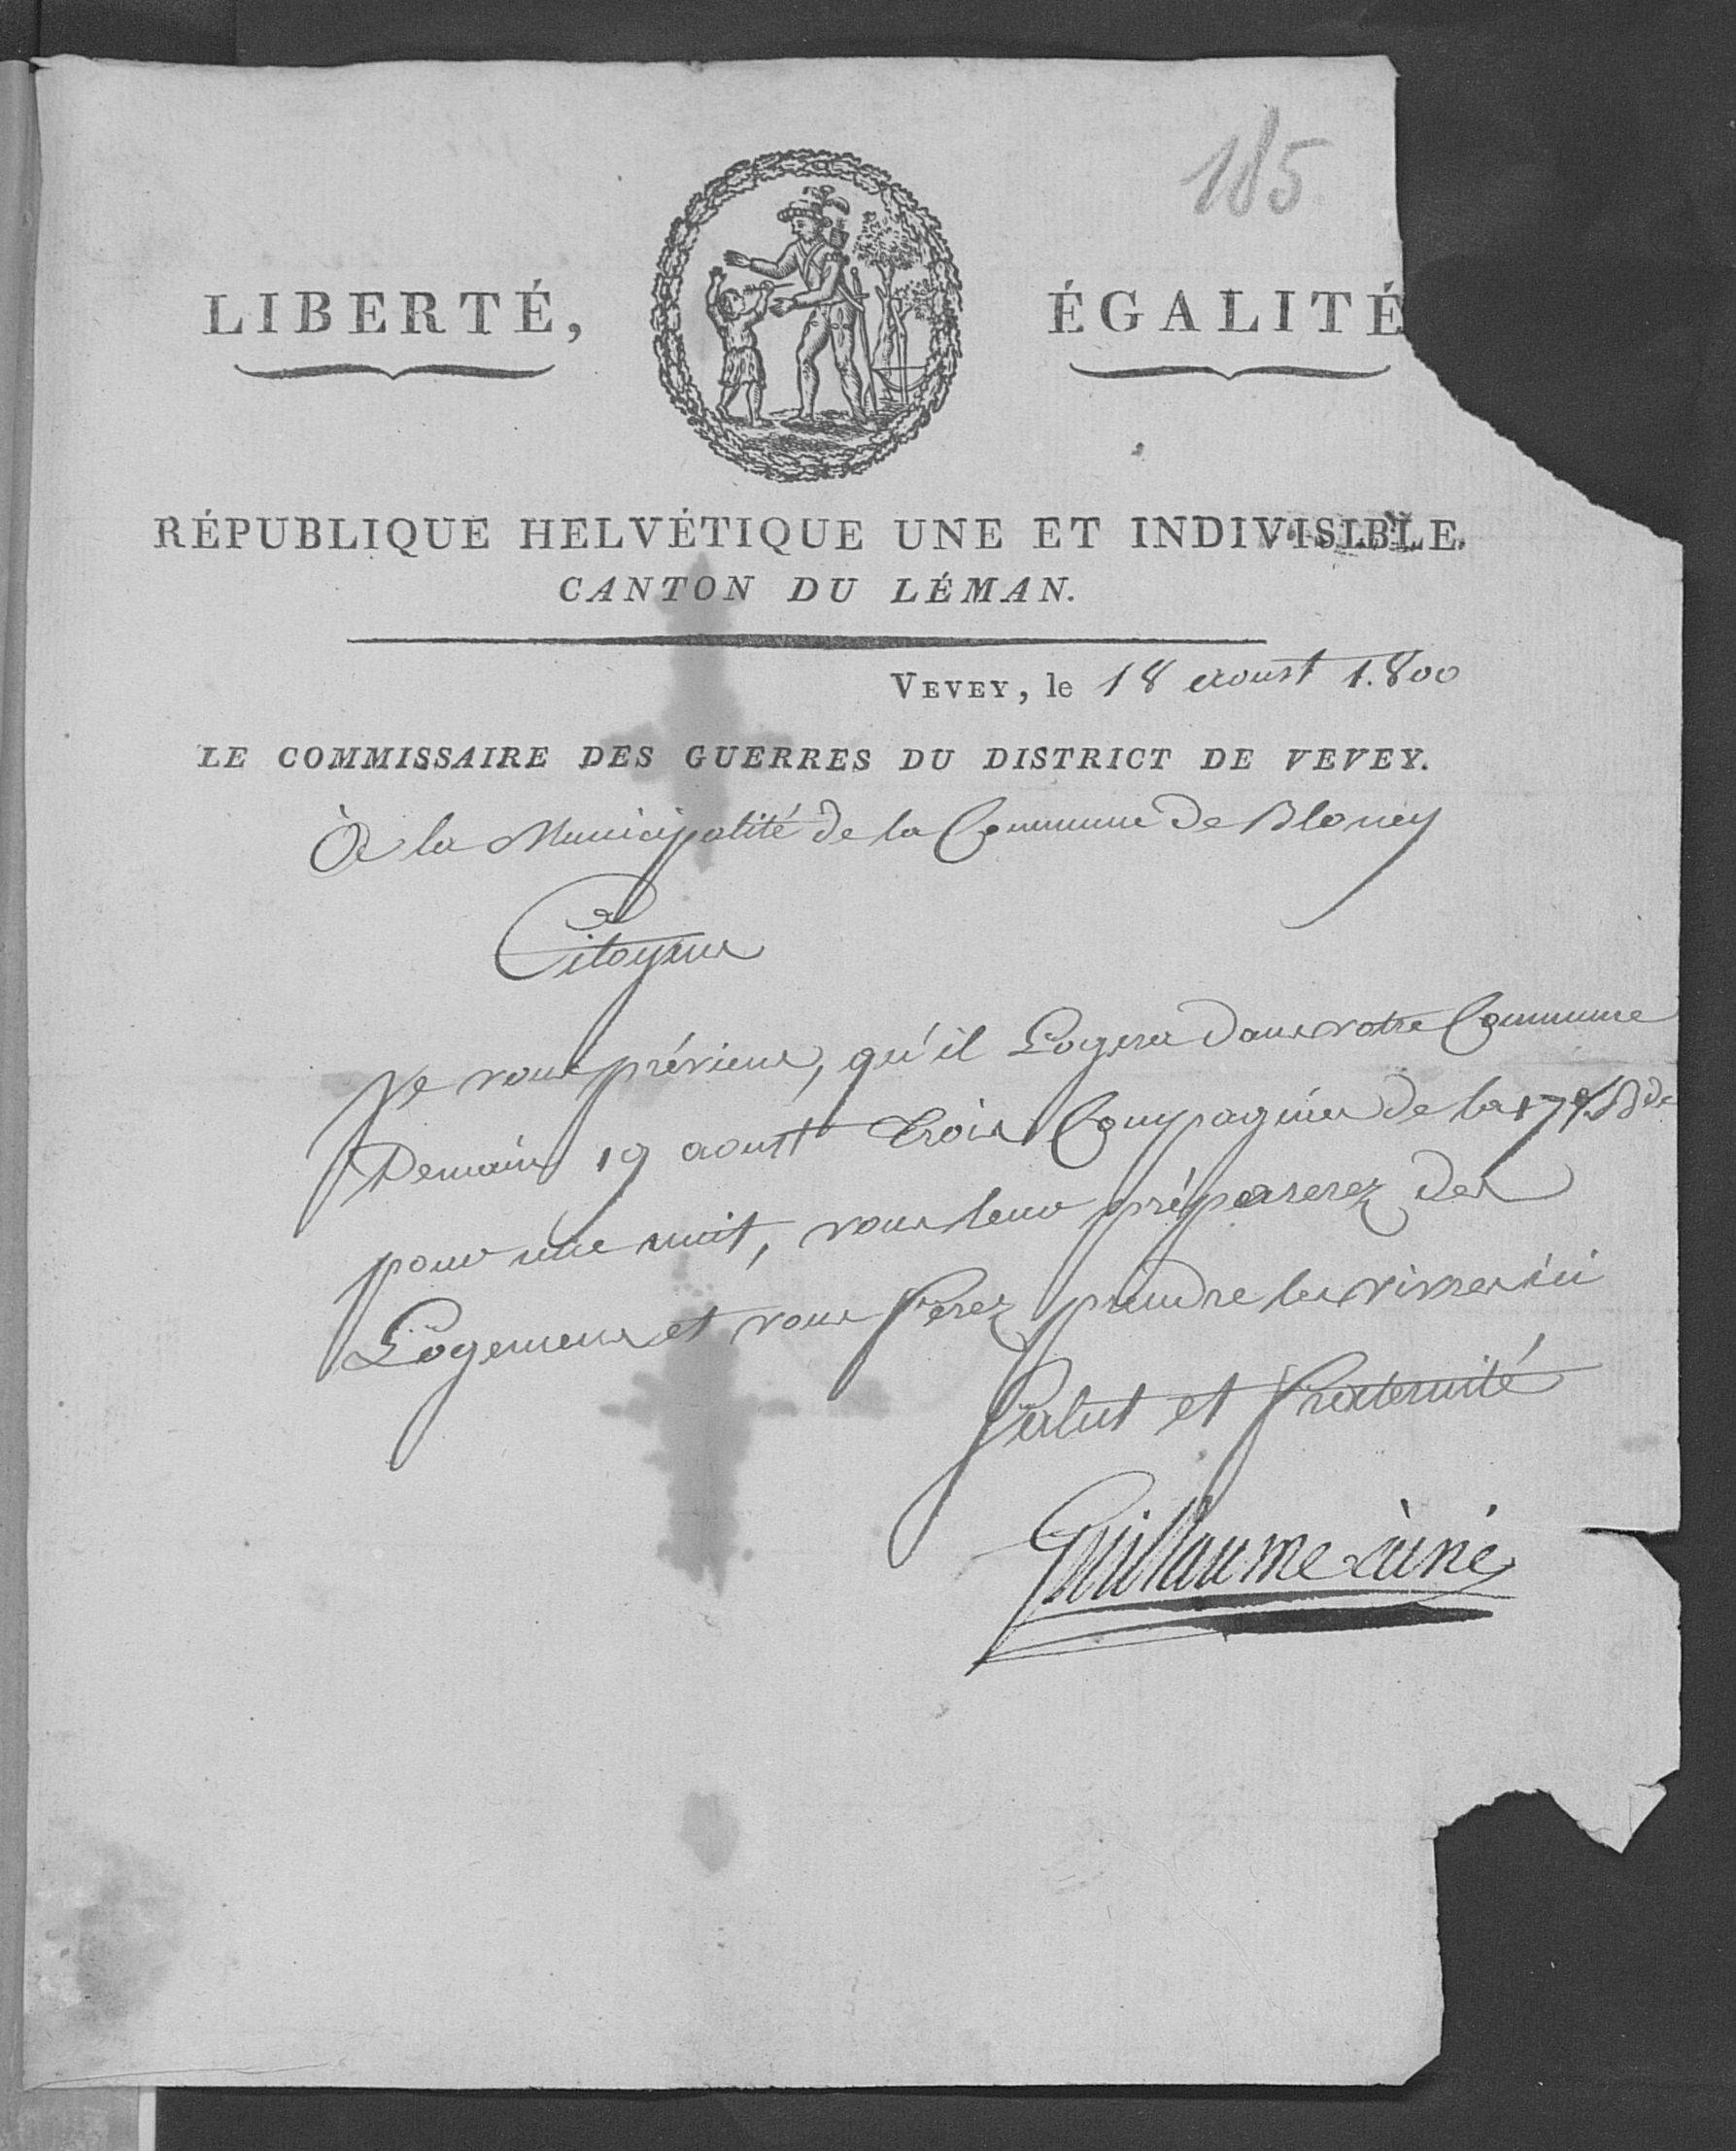 185
LIBERTÉ, ÉGALITÉ
RÉPUBLIQUE HELVÉTIQUE UNE ET INDIVISIBLE.
CANTON DU LÉMAN.
VEVEY, le 18 aoust 1.800
LE COMMISSAIRE DES GUERRES DU DISTRICT DE VEVEY.
À la Municipalité de la Commune de Blonay
Citoyens
Je vous préviens, qu'il Logera dans votre Commune
Demain 19 aoust Trois Compagnies de la 17e
pour une nuit, vous leur préparerez des
Logemens et vous ferez prendre les vivres ici
Salut et fraternité
Guillaume ainé